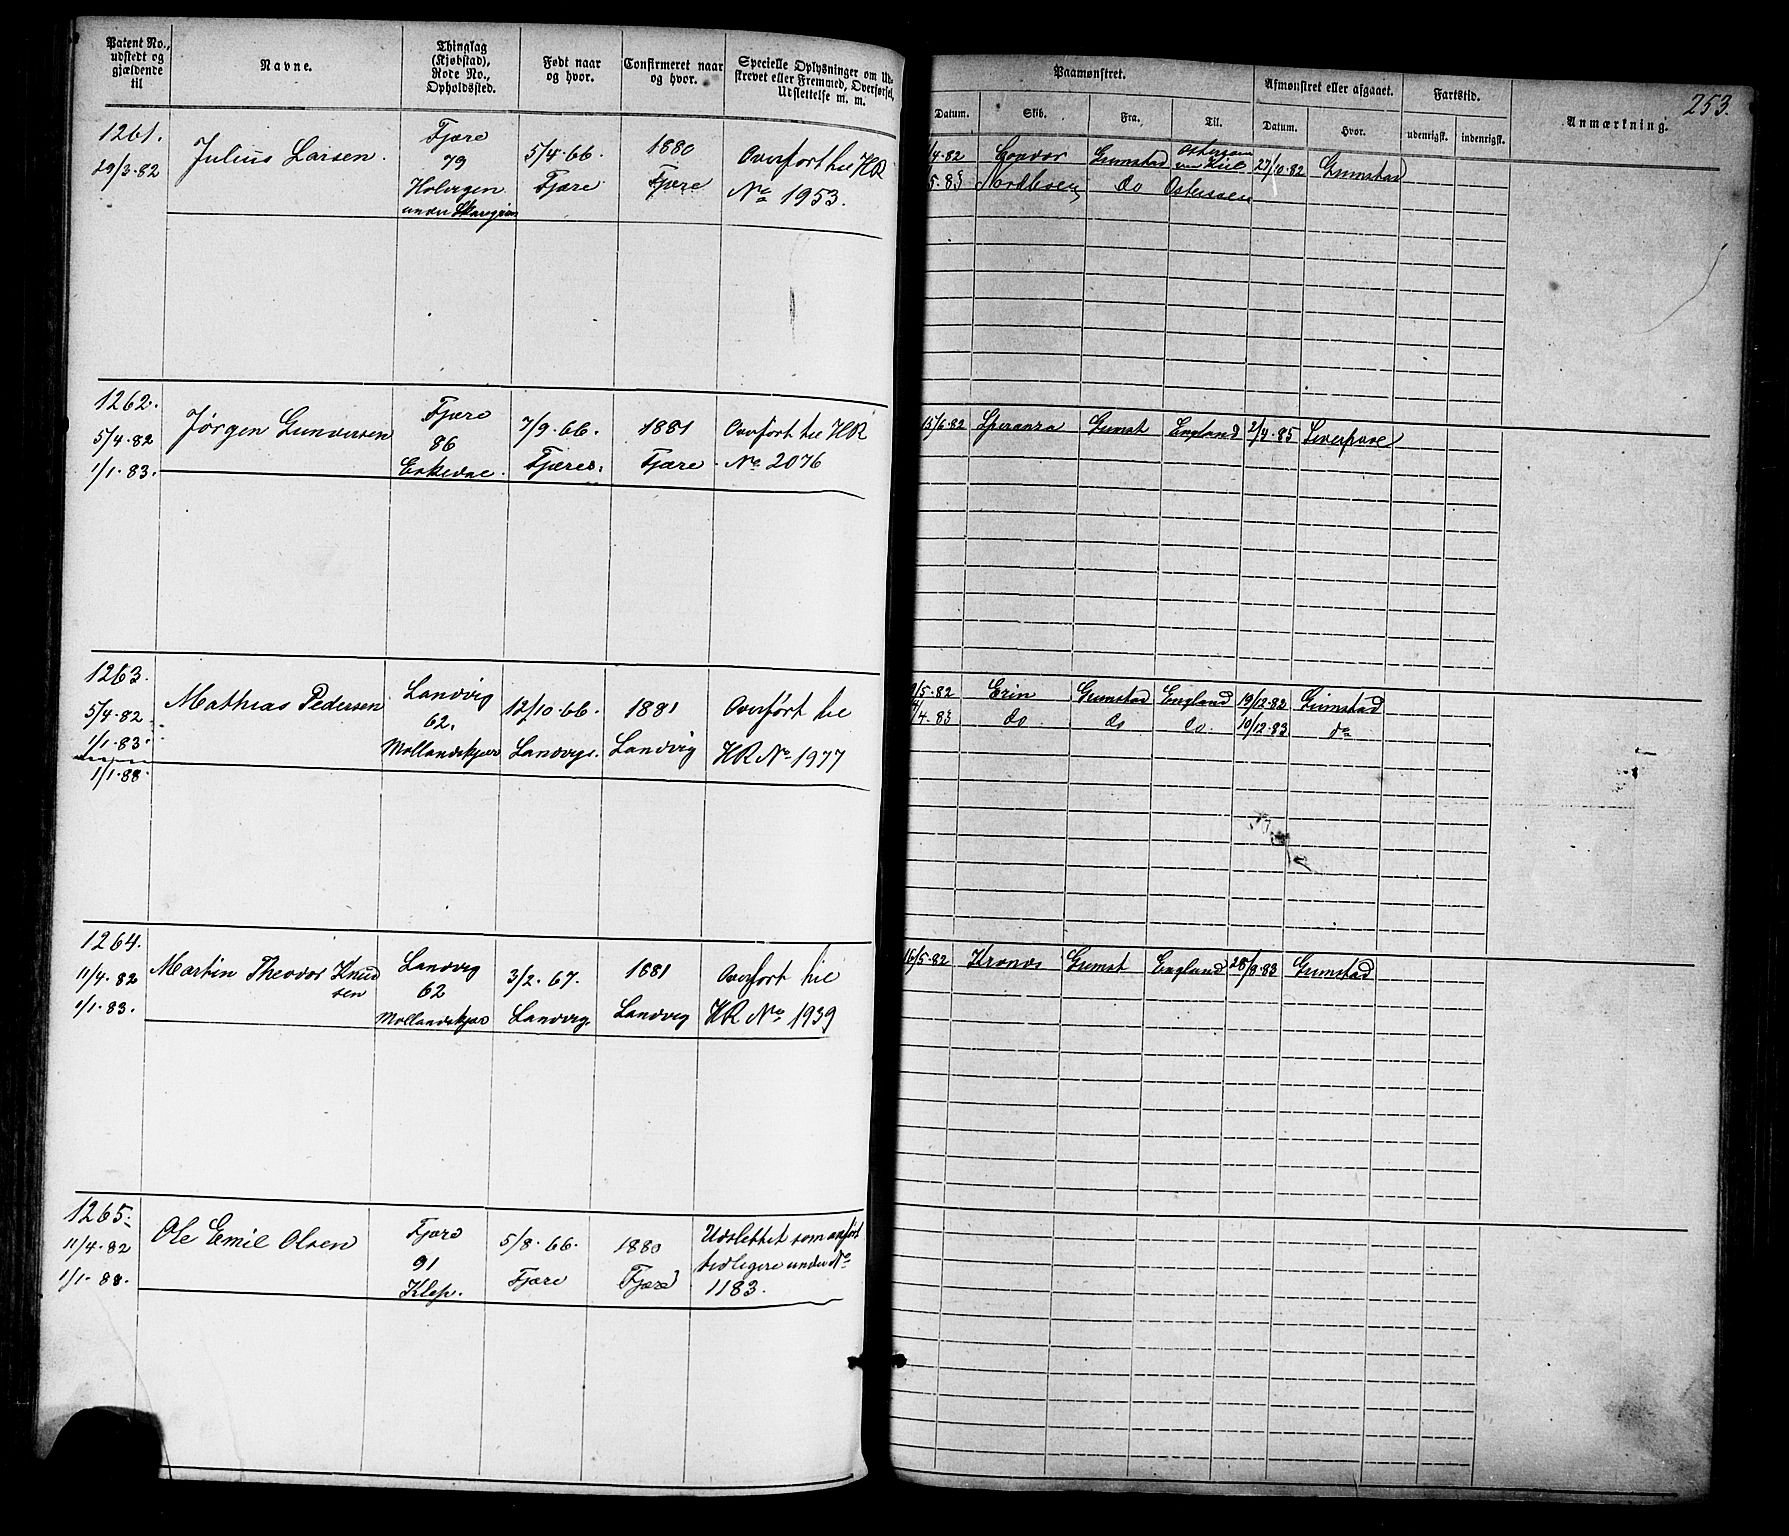 Patent No., udstedt og gjældende til
Navne.
Thinglag (Kjøbstad), Rode No., Opholdssted.
Født naar og hvor.
Confirmeret naar og hvor.
Specielle Oplysninger om Ud-
skrevet eller Fremmed, Overførsel,
Udslettelse m. m.
Paamønstret.
Afmønstret eller afgaaet.
Fartstid.
Anmærkning.
253.
Datum.
Skib.
Fra.
Til.
Datum.
Hvor.
udenrigst.
indenrigst.
1261.
29/3.82
Julius Larsen.
Fjære
79
Holvigen
under
5/4.66.
Fjære
1880
Fjære
Overført til HR
No 1953.
/4.82
Grimstad
27/10.82
Grimstad
5.83
do
1262.
5/4.82
1/1.83.
Jørgen Gundersen
Fjære
86
7/9.66.
Fjære.
1881
Fjære.
Overført til HR
No 2076
15/6.82
Speranza
Grimst
England
2/4.85
Liverpool
1263.
5/4.82
1/1.83.
1/1.88.
Mathias Pedersen
Landvig
62.
Mollandskjær
12/10.66.
Landvig.
1881
Landvig
Overført til
HR No 1977
/5.82
Erin
Grimstad
England
19/12.82
Grimstad
/4.83
do.
do
do.
10/12.83
do
1264.
11/4.82
1/1.83.
Martin Theodor Knud
sen
Landvig
62
Mollandskjær
3/2.67.
Landvig.
1881
Landvig
Overført til
HR No 1939
16/5.82
Kronos
Grimst
England
28/9.83
Grimstad
1265.
11/4.82
1/1.88.
Ole Emil Olsen
Fjære
91
Klep.
5/8.66.
Fjære
1880
Fjære
Udslettet som anført
tidligere under No
1183.